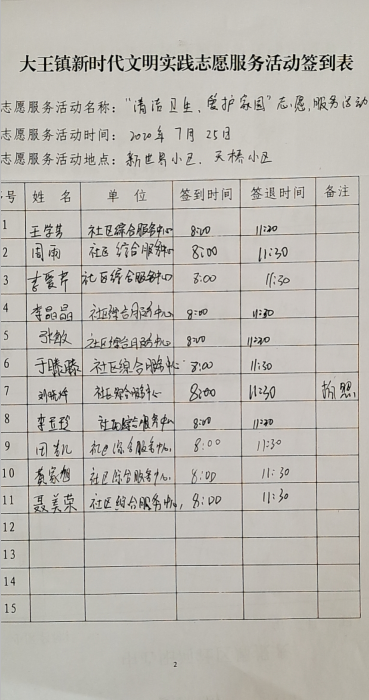 大王镇新时代文明实践志愿服务活动签到表
志愿服务活动名称："清洁卫生、爱护家园"志愿服务活动
志愿服务活动时间：2020年7月25日
志愿服务活动地点：新世界小区、天桥小区
号 姓 名 单 位 签到时间 签退时间 备注
1 社区综合服务中心 8:00 11:30
2 周雨 社区综合服务中心 8:00 11:30
3 李爱芹 社区综合服务中心 8:00 11:30
4 李晶晶 社区综合服务中心 8:00 11:30
5 张敏 社区综合服务中心 8:00 11:30
6 于滕滕 社区综合服务中心 8:00 11:30
7 社区综合服务中心 8:00 11:30 拍照
8 社区综合服务中心 8:00 11:30
9 社区综合服务中心 8:00 11:30
10 黄家旭 社区综合服务中心 8:00 11:30
11 聂美荣 社区综合服务中心 8:00 11:30
12
13
14
15
2